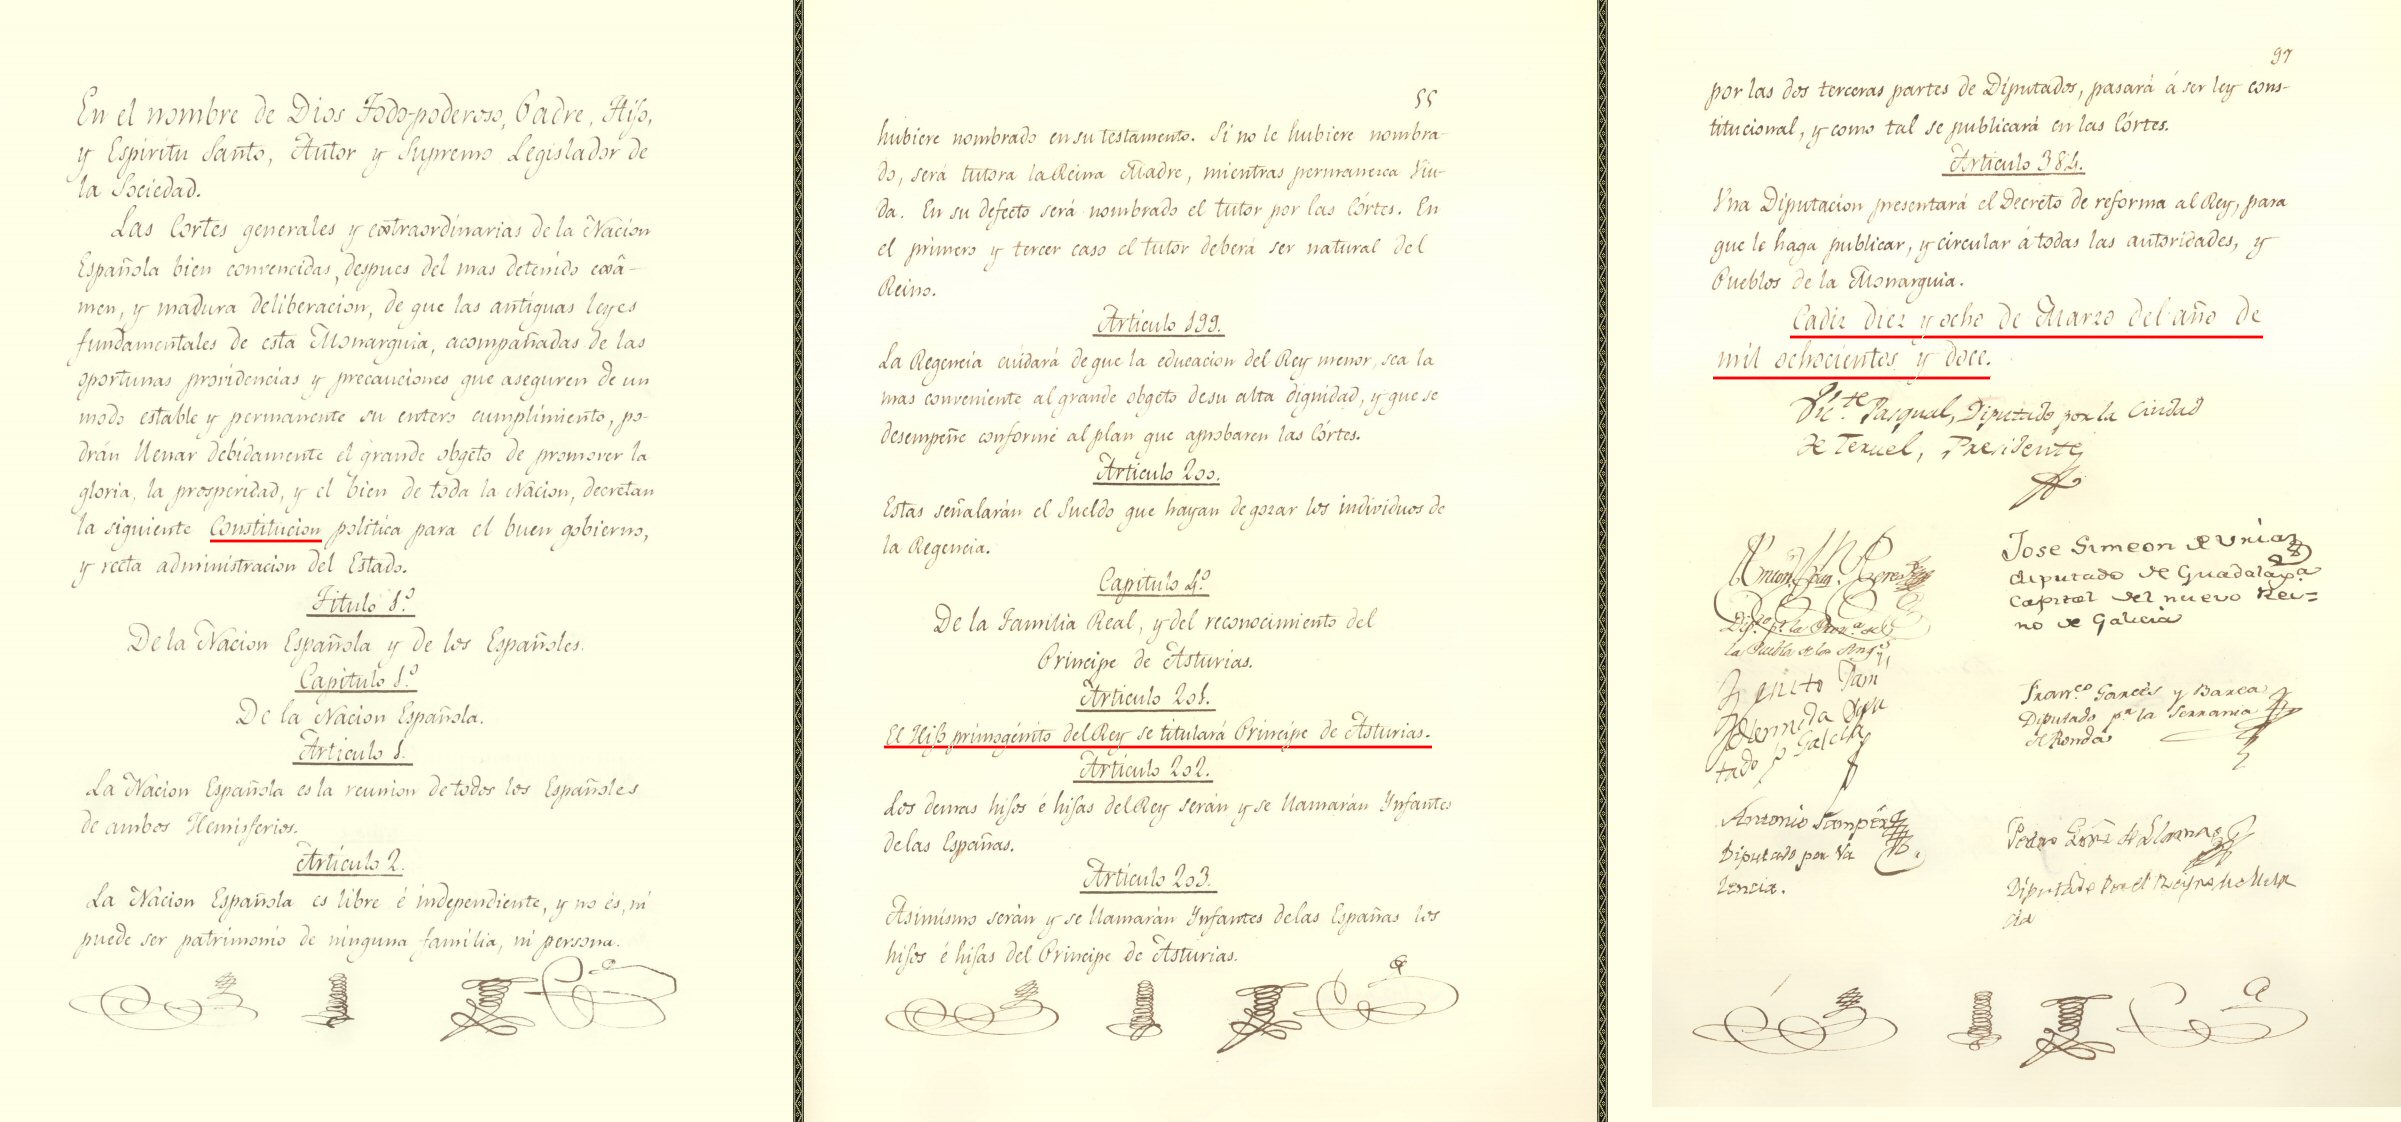 En el nombre de Dios Todo-poderoso, Padre, Hijo,
y Espíritu Santo, Autor y Supremo Legislador de
la Sociedad.
Las Cortes generales y extraordinarias de la Nacion
Española bien convencidas, despues del mas detenido exâ-
men, y madura deliberacion, de que las antiguas leyes
fundamentales de esta Monarquia, acompañadas de las
oportunas providencias y precauciones que aseguren de un
modo estable y permanente su entero cumplimiento, po-
drán llenar debidamente el grande obgeto de promover la
gloria, la prosperidad, y el bien de toda la Nacion, decretan
la siguiente Constitucion politica para el buen gobierno,
y recta administracion del Estado.
Titulo 1.º
De la Nacion Española y de los Españoles.
Capitulo 1.º
De la Nacion Española.
Articulo 1.
La Nacion Española es la reunion de todos los Españoles
de ambos Hemisferios.
Articulo 2.
La Nacion Española es libre é independiente, y no és, ni
puede ser patrimonio de ninguna familia, ni persona.
55
hubiere nombrado en su testamento. Si no le hubiere nombra-
do, será tutora la Reina Madre, mientras permanezca Viu-
da. En su defecto será nombrado el tutor por las Córtes. En
el primero y tercer caso el tutor deberá ser natural del
Reino.
Articulo 199.
La Regencia cuidará de que la educacion del Rey menor, sea la
mas conveniente al grande obgeto de su alta dignidad, y que se
desempeñe conforme al plan que aprobaren las Córtes.
Articulo 200.
Estas señalarán el Sueldo que hayan de gozar los individuos de
la Regencia.
Capitulo 4.º
De la Familia Real, y del reconocimiento del
Principe de Asturias.
Articulo 201.
El Hijo primogénito del Rey se titulará Principe de Asturias.
Articulo 202.
Los demas hijos é hijas del Rey serán y se llamarán Ynfantes
de las Españas.
Articulo 203.
Asimismo serán y se llamarán Ynfantes de las Españas los
hijos é hijas del Principe de Asturias.
97
por las dos terceras partes de Diputados, pasará á ser ley cons-
titucional, y como tal se publicará en las Córtes.
Articulo 384.
Una Diputacion presentará el Decreto de reforma al Rey, para
que le haga publicar, y circular á todas las autoridades, y
Pueblos de la Monarquia.
Cadiz diez y ocho de Marzo del año de
mil ochocientos y doce.
Vic.te Pasqual, Diputado por la Ciudad
de Teruel, Presidente
Jose Simeon de Uria
diputado de Guadalax.a
capital del nuevo Rei=
no de Galicia
Dip.do p.r la Prov.a de
la Puebla de los Ang.s
Benito
Hermida Dipu
tado p Galicia
Fran.co Garcés y Barea
Diputado p.r la Serrania
de Ronda
Antonio Samper
Diputado por Va
lencia.
Pedro
Diputado Por el Reyno de Mur
cia